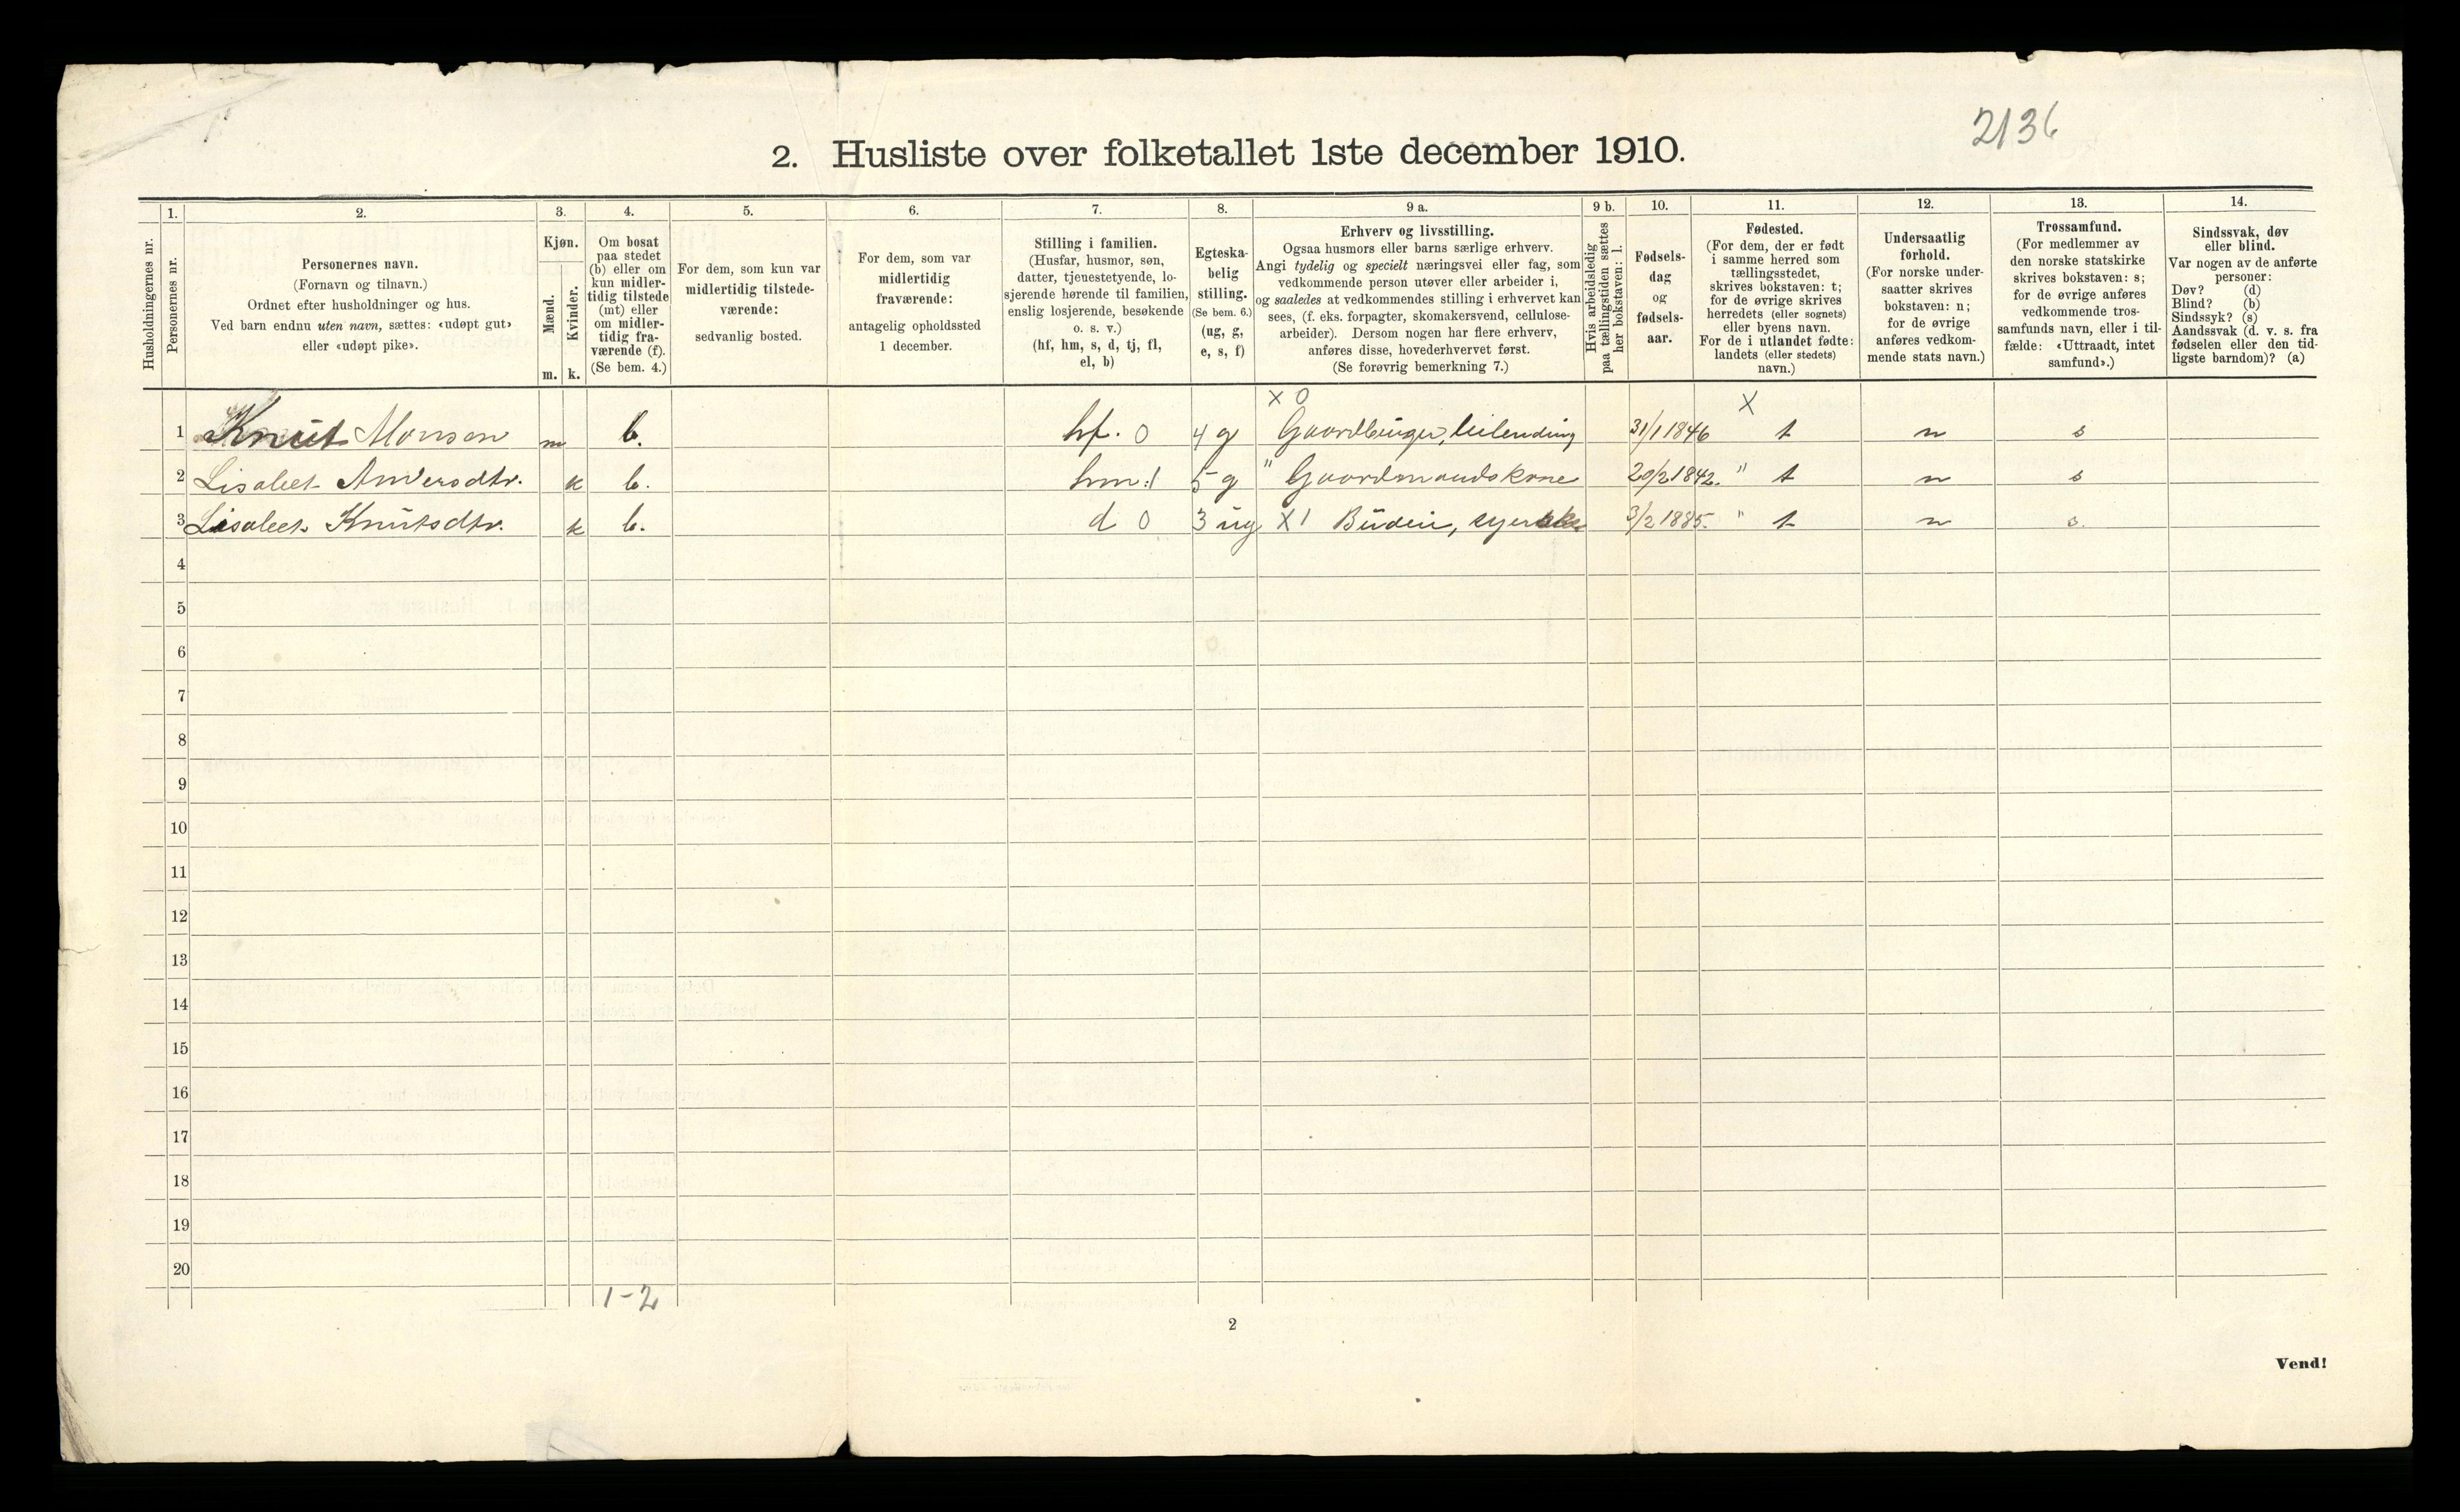 2136
2. Husliste over folketallet 1ste december 1910.
Husholdningernes nr.
1.
Personernes nr.
2.
Personernes navn.
(Fornavn og tilnavn.)
Ordnet efter husholdninger og hus.
Ved barn endnu uten navn, sættes: «udøpt gut»
eller «udøpt pike».
3.
Kjøn.
Mænd.
Kvinder.
m. k.
4.
Om bosat
paa stedet
(b) eller om
kun midler-
tidig tilstede
(mt) eller
om midler-
tidig fra-
værende (f).
(Se bem. 4.)
5.
For dem, som kun var
midlertidig tilstede-
værende:
sedvanlig bosted.
6.
For dem, som var
midlertidig
fraværende:
antagelig opholdssted
1 december.
7.
Stilling i familien.
(Husfar, husmor, søn,
datter, tjenestetyende, lo-
sjerende hørende til familien,
enslig losjerende, besøkende
o. s. v.)
(hf, hm, s, d, tj, fl,
el, b)
8.
Egteska-
belig
stilling.
(Se bem. 6.)
(ug, g,
e, s, f)
9 a.
Erhverv og livsstilling.
Ogsaa husmors eller barns særlige erhverv.
Angi tydelig og specielt næringsvei eller fag, som
vedkommende person utøver eller arbeider i,
og saaledes at vedkommendes stilling i erhvervet kan
sees, (f. eks. forpagter, skomakersvend, cellulose-
arbeider). Dersom nogen har flere erhverv,
anføres disse, hovederhvervet først.
(Se forøvrig bemerkning 7.)
9 b.
Hvis arbeidsledig
paa tællingstiden sættes
her bokstaven: l.
10.
Fødsels-
dag
og
fødsels-
aar.
11.
Fødested.
(For dem, der er født
i samme herred som
tællingsstedet,
skrives bokstaven: t;
for de øvrige skrives
herredets (eller sognets)
eller byens navn.
For de i utlandet fødte:
landets (eller stedets)
navn.)
12.
Undersaatlig
forhold.
(For norske under-
saatter skrives
bokstaven: n;
for de øvrige
anføres vedkom-
mende stats navn.)
13.
Trossamfund.
(For medlemmer av
den norske statskirke
skrives bokstaven: s;
for de øvrige anføres
vedkommende tros-
samfunds navn, eller i til-
fælde: «Uttraadt, intet
samfund».)
14.
Sindssvak, døv
eller blind.
Var nogen av de anførte
personer:
Døv? (d)
Blind? (b)
Sindssyk? (s)
Aandssvak (d. v. s. fra
fødselen eller den tid-
ligste barndom)? (a)
X 0 X
1 Knut Monsen m b. hf. 0 4 g Gaardbruger, leilending 31/1 1846 t n s
2 Lisabet Andersdtr. k b. hm 1 5 g " Gaardmandskone 20/2 1842. " t n s
3 Lisabet Knutsdtr. k b. d 0 3 ug X 1 Budeie, 3/2 1885. " t n s.
4
5
6
7
8
9
10
11
12
13
14
15
16
17
18
19
20
1-2
2
Vend!